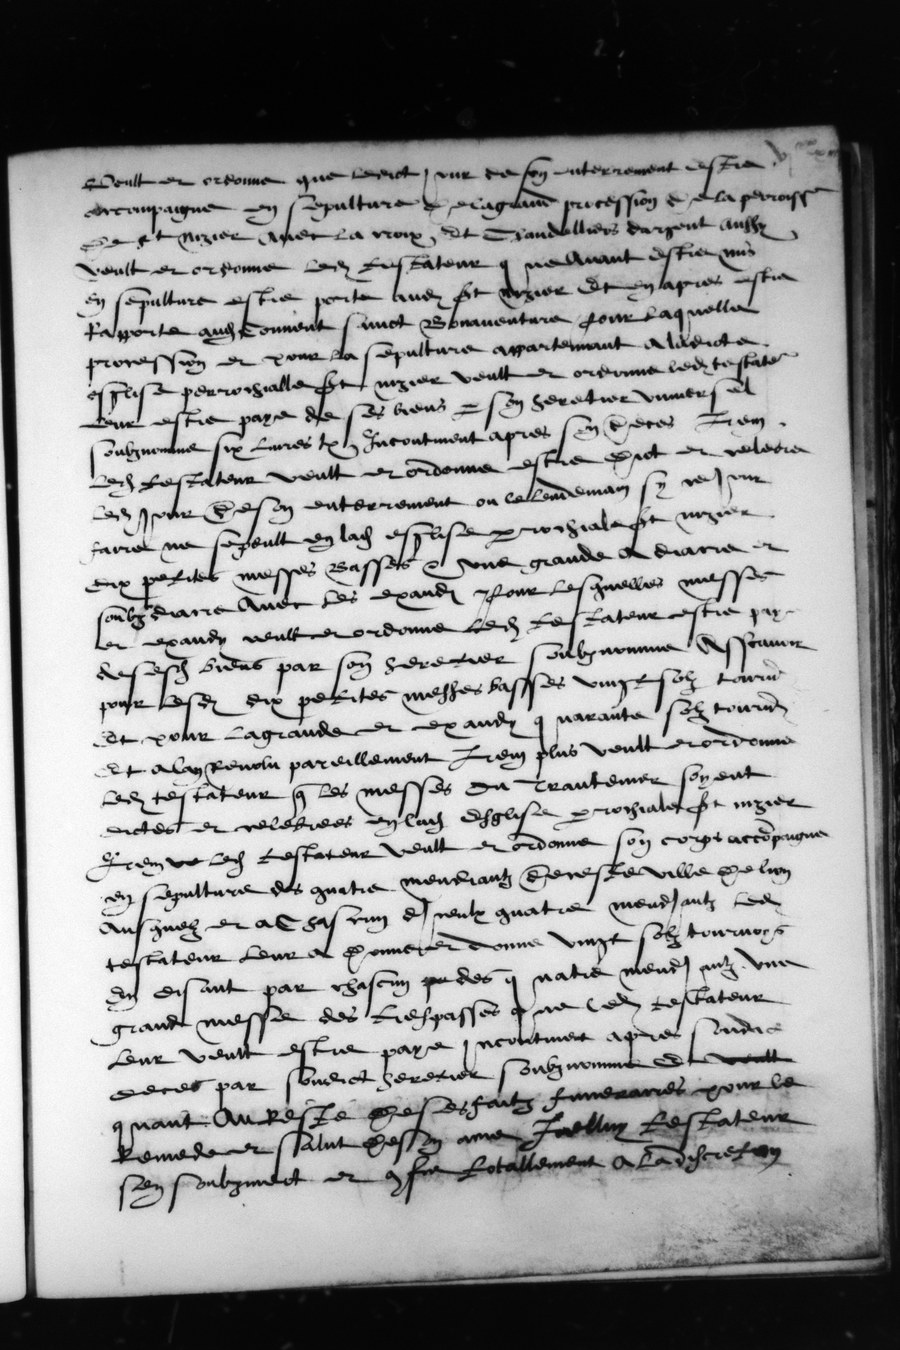 Veult et ordonne que ledict jour de son enterrement estre
accompaigne en sepulture de la grand procession de la perroisse
de st nizier avec la croix et chandelliers dargent aussy
veult et ordonne led testateur que avant estre mis
en sepulture estre porte aud st nizier et en apres estre
rapporte aud couvent sainct Bonaventure pour laquelle
procession et pour la sepulture appartenant a ladicte
esglise perrochialle st nizier veult et ordonne led testateur
leur estre paye de ses biens p son heretier universel
soubznomme six livres tz incontinent apres son deces Item
led testateur veult et ordonne estre dict et celebre
led jour de son enterrement ou le lendemain sy led jour
faire ne se peult en lad esglise perrochiale st nizier
dix petites messes basses et une grande a diacre et
soubzdiacre avec les exaudi pour lesquelles messes
et exaudy veult et ordonne led testateur estre paye
de sesd biens par son heretier soubznomme Assçavoir
pour lesd dix petites messes basses vingt solz tourn
Et pour la grande et exaudy quarante solz tourn
Et a lan revolu pareillement Item plus veult et ordonne
led testateur q les messes du trantenier soyent
dictes et celebrees en lad esglise perrochiale st nizier
Item led testateur veult et ordonne son corps accompaigne
en sepulture des quatre mendiantz de ceste ville de lion
Ausquelz et a chascun diceulx quatre mendiantz led
testateur leur a donne et donne vingt solz tournois
En disant par chascun des quatre mendiantz une
grand messe des trespasses que led testateur
leur veult estre paye incontinent apres sondict
deces par sondict heretier soubznomme
quant Au reste de ses faictz funeraires pour le
Remede et salut de son ame Icelluy testateur
sen soubzmect et confie totallement a la discretion